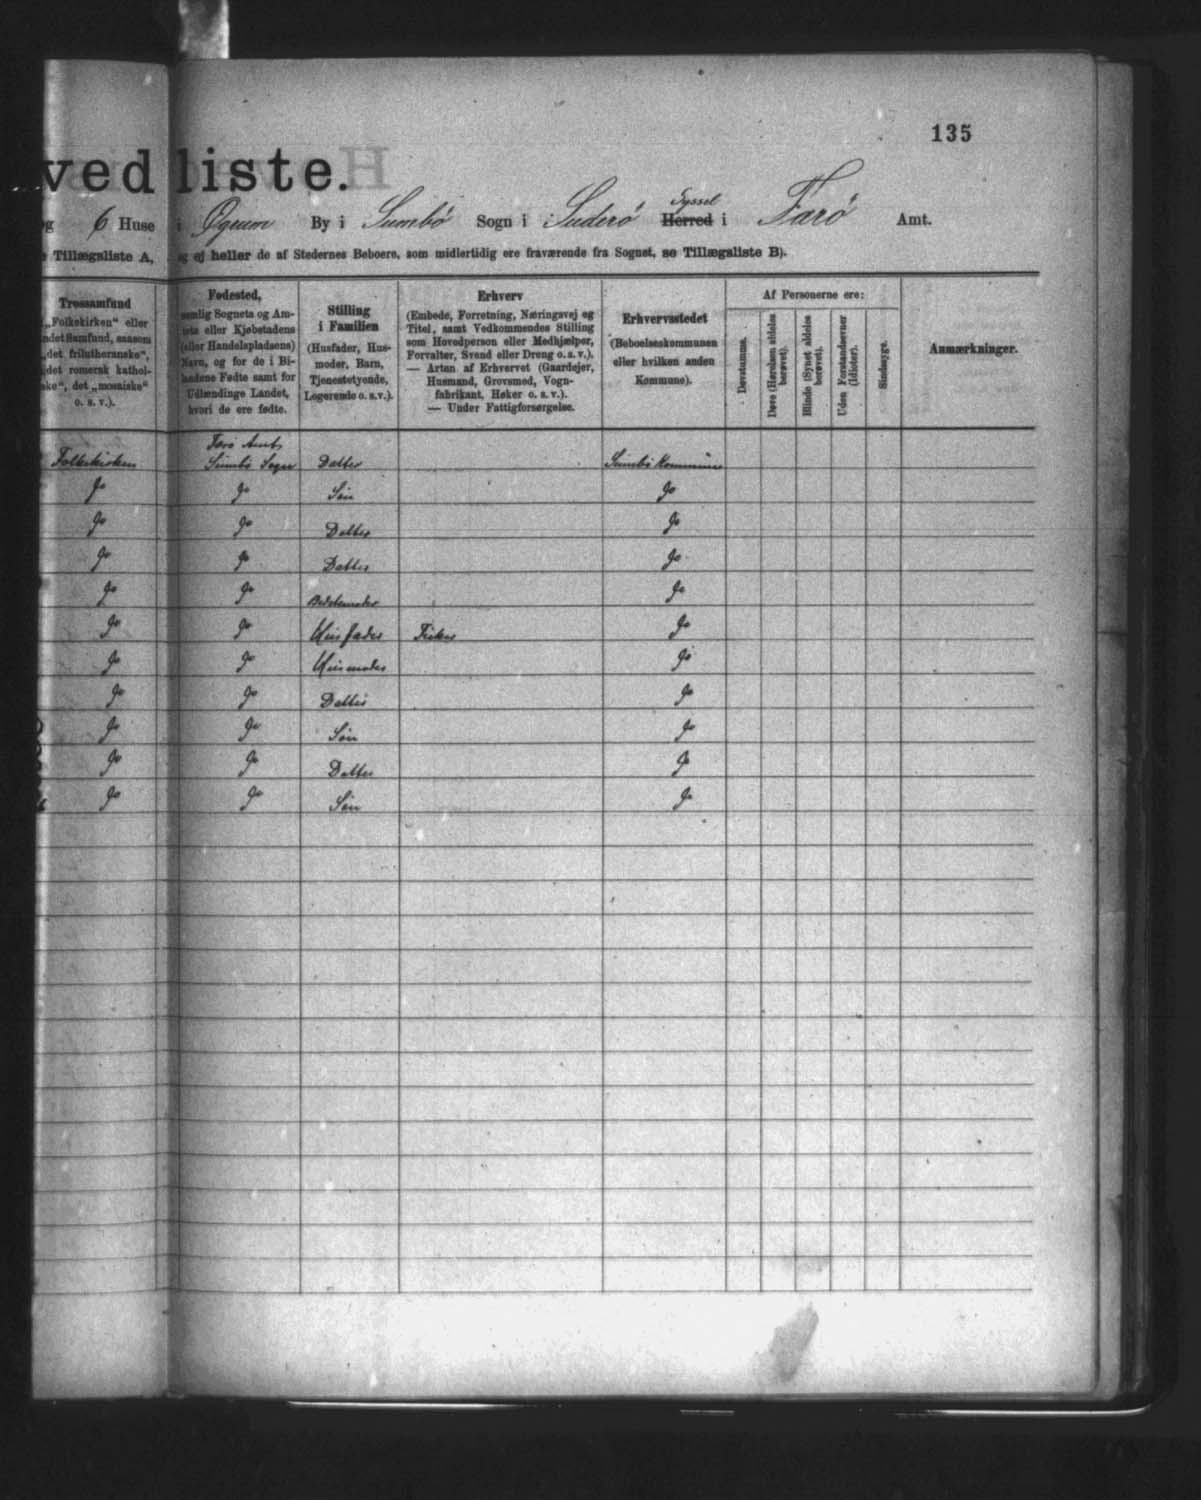 135
ved liste.
og 6 Huse i Øqrum By i Sumbö Sogn i Suderö Herred Syssel i Farö Amt.
Tillægsliste A, og ej heller de af Stedernes Beboere, som midlertidig ere fraværende fra Sognet, se Tillægsliste B).
Trossamfund
„Folkekirken“ eller
andet Samfund, saasom
„det frilutheranske“,
det romersk kathol-
ske“, det „mosaiske“
o. s. v.).
Fødested,
nemlig Sognets og Am-
tets eller Kjøbstadens
(eller Handelspladsens)
Navn, og for de i Bi-
landene Fødte samt for
Udlændinge Landet,
hvori de ere fødte.
Stilling
i Familien
(Husfader, Hus-
moder, Barn,
Tjenestetyende,
Logerende o. s. v.).
Erhverv
(Embede, Forretning, Næringsvej og
Titel, samt Vedkommendes Stilling
som Hovedperson eller Medhjælper,
Forvalter, Svend eller Dreng o. s. v.).
— Arten af Erhvervet (Gaardejer,
Husmand, Grovsmed, Vogn-
fabrikant, Høker o. s. v.).
— Under Fattigforsørgelse.
Erhvervsstedet
(Beboelseskommunen
eller hvilken anden
Kommune).
Af Personerne ere:
Døvstumme.
Døve (Hørelsen aldeles
berøvet).
Blinde (Synet aldeles
berøvet).
Uden Forstandsevner
(Idioter).
Sindssyge.
Anmærkninger.
Færø Amt,
Folkekirken Sumbö Sogn Datter Sumbö Kommune
Do Do Sön Do
Do Do Datter Do
Do Do Datter Do
Do Do Bedstemoder Do
Do Do Husfader Fisker Do
Do Do Husmoder Do
Do Do Datter Do
Do Do Sön Do
Do Do Datter Do
Do Do Sön Do